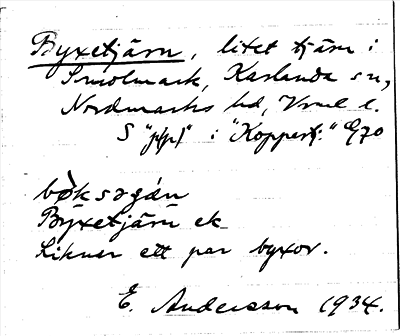 Byxetjärn, litet tjärn i
Smolmark, Karlanda sn,
Nordmarks hd, Vrml l.
S "ptpt" i "Koppertj." Eg70
bòksəgán
Byxetjärn ek
Liknar ett par byxor.
E. Andersson 1934.